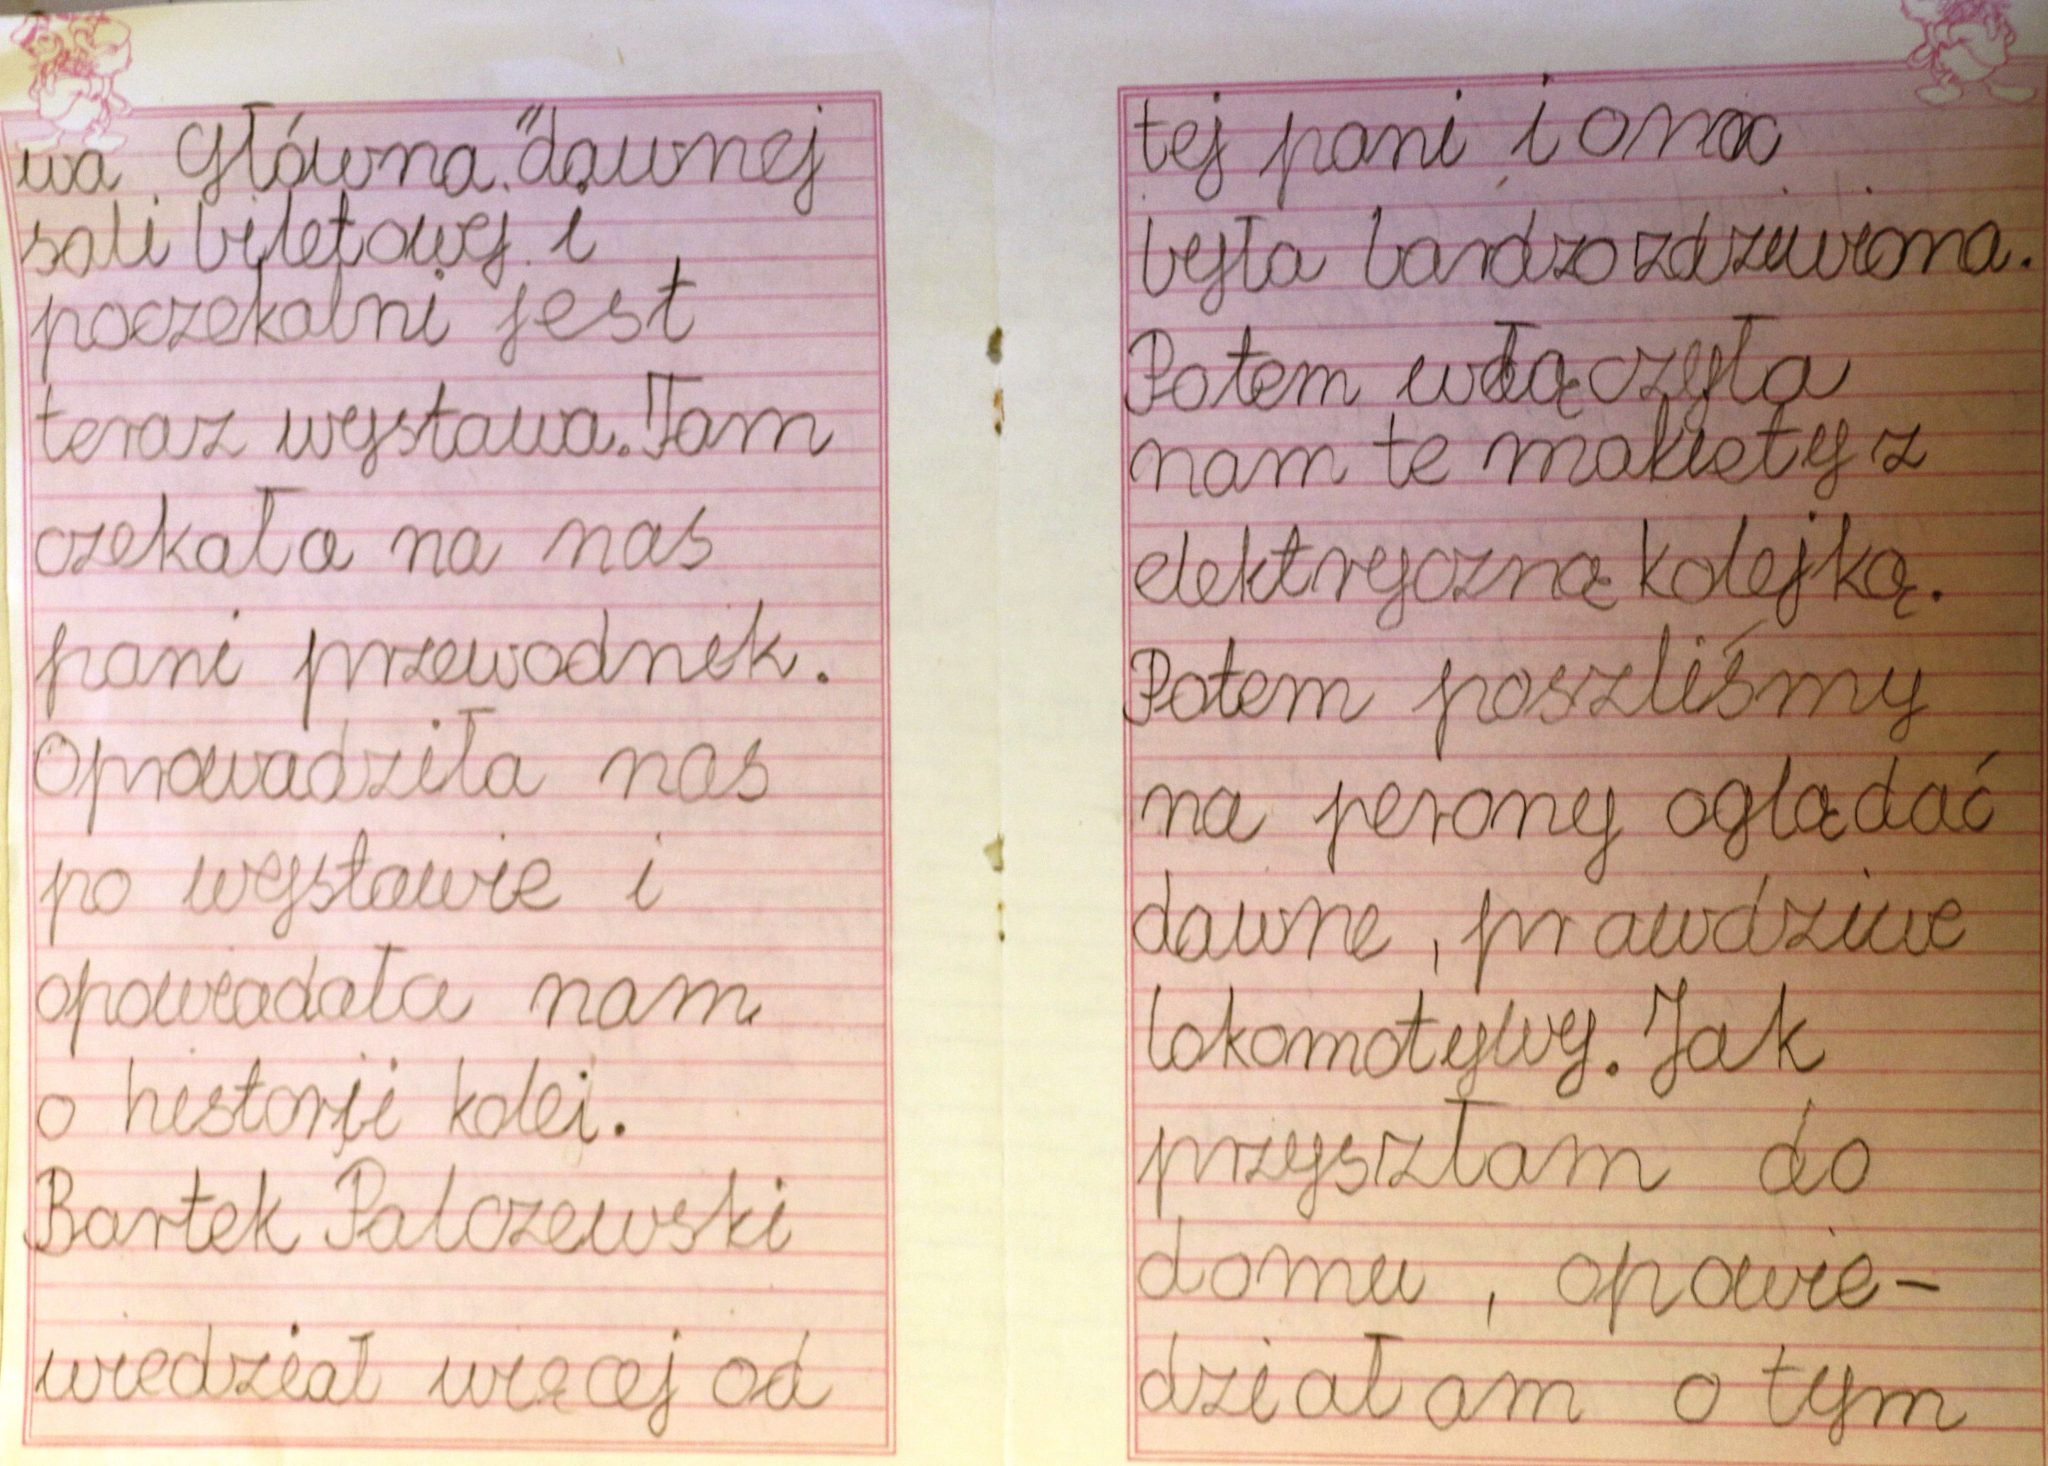 wa Główna." dawnej
sali biletowej i
poczekalni jest
teraz wystawa. Tam
czekała na nas
pani przewodnik.
Oprowadziła nas
po wystawie i
opowiadała nam
o historji kolei.
Bartek Palczewski
wiedział więcej od
tej pani i ona
była bardzo zdziwiona.
Potem włączyła
nam te makiety z
elektryczną kolejką.
Potem poszliśmy
na perony oglądać
dawne, prawdziwe
lokomotywy. Jak
przyszłam do
domu, opowie-
działam o tym